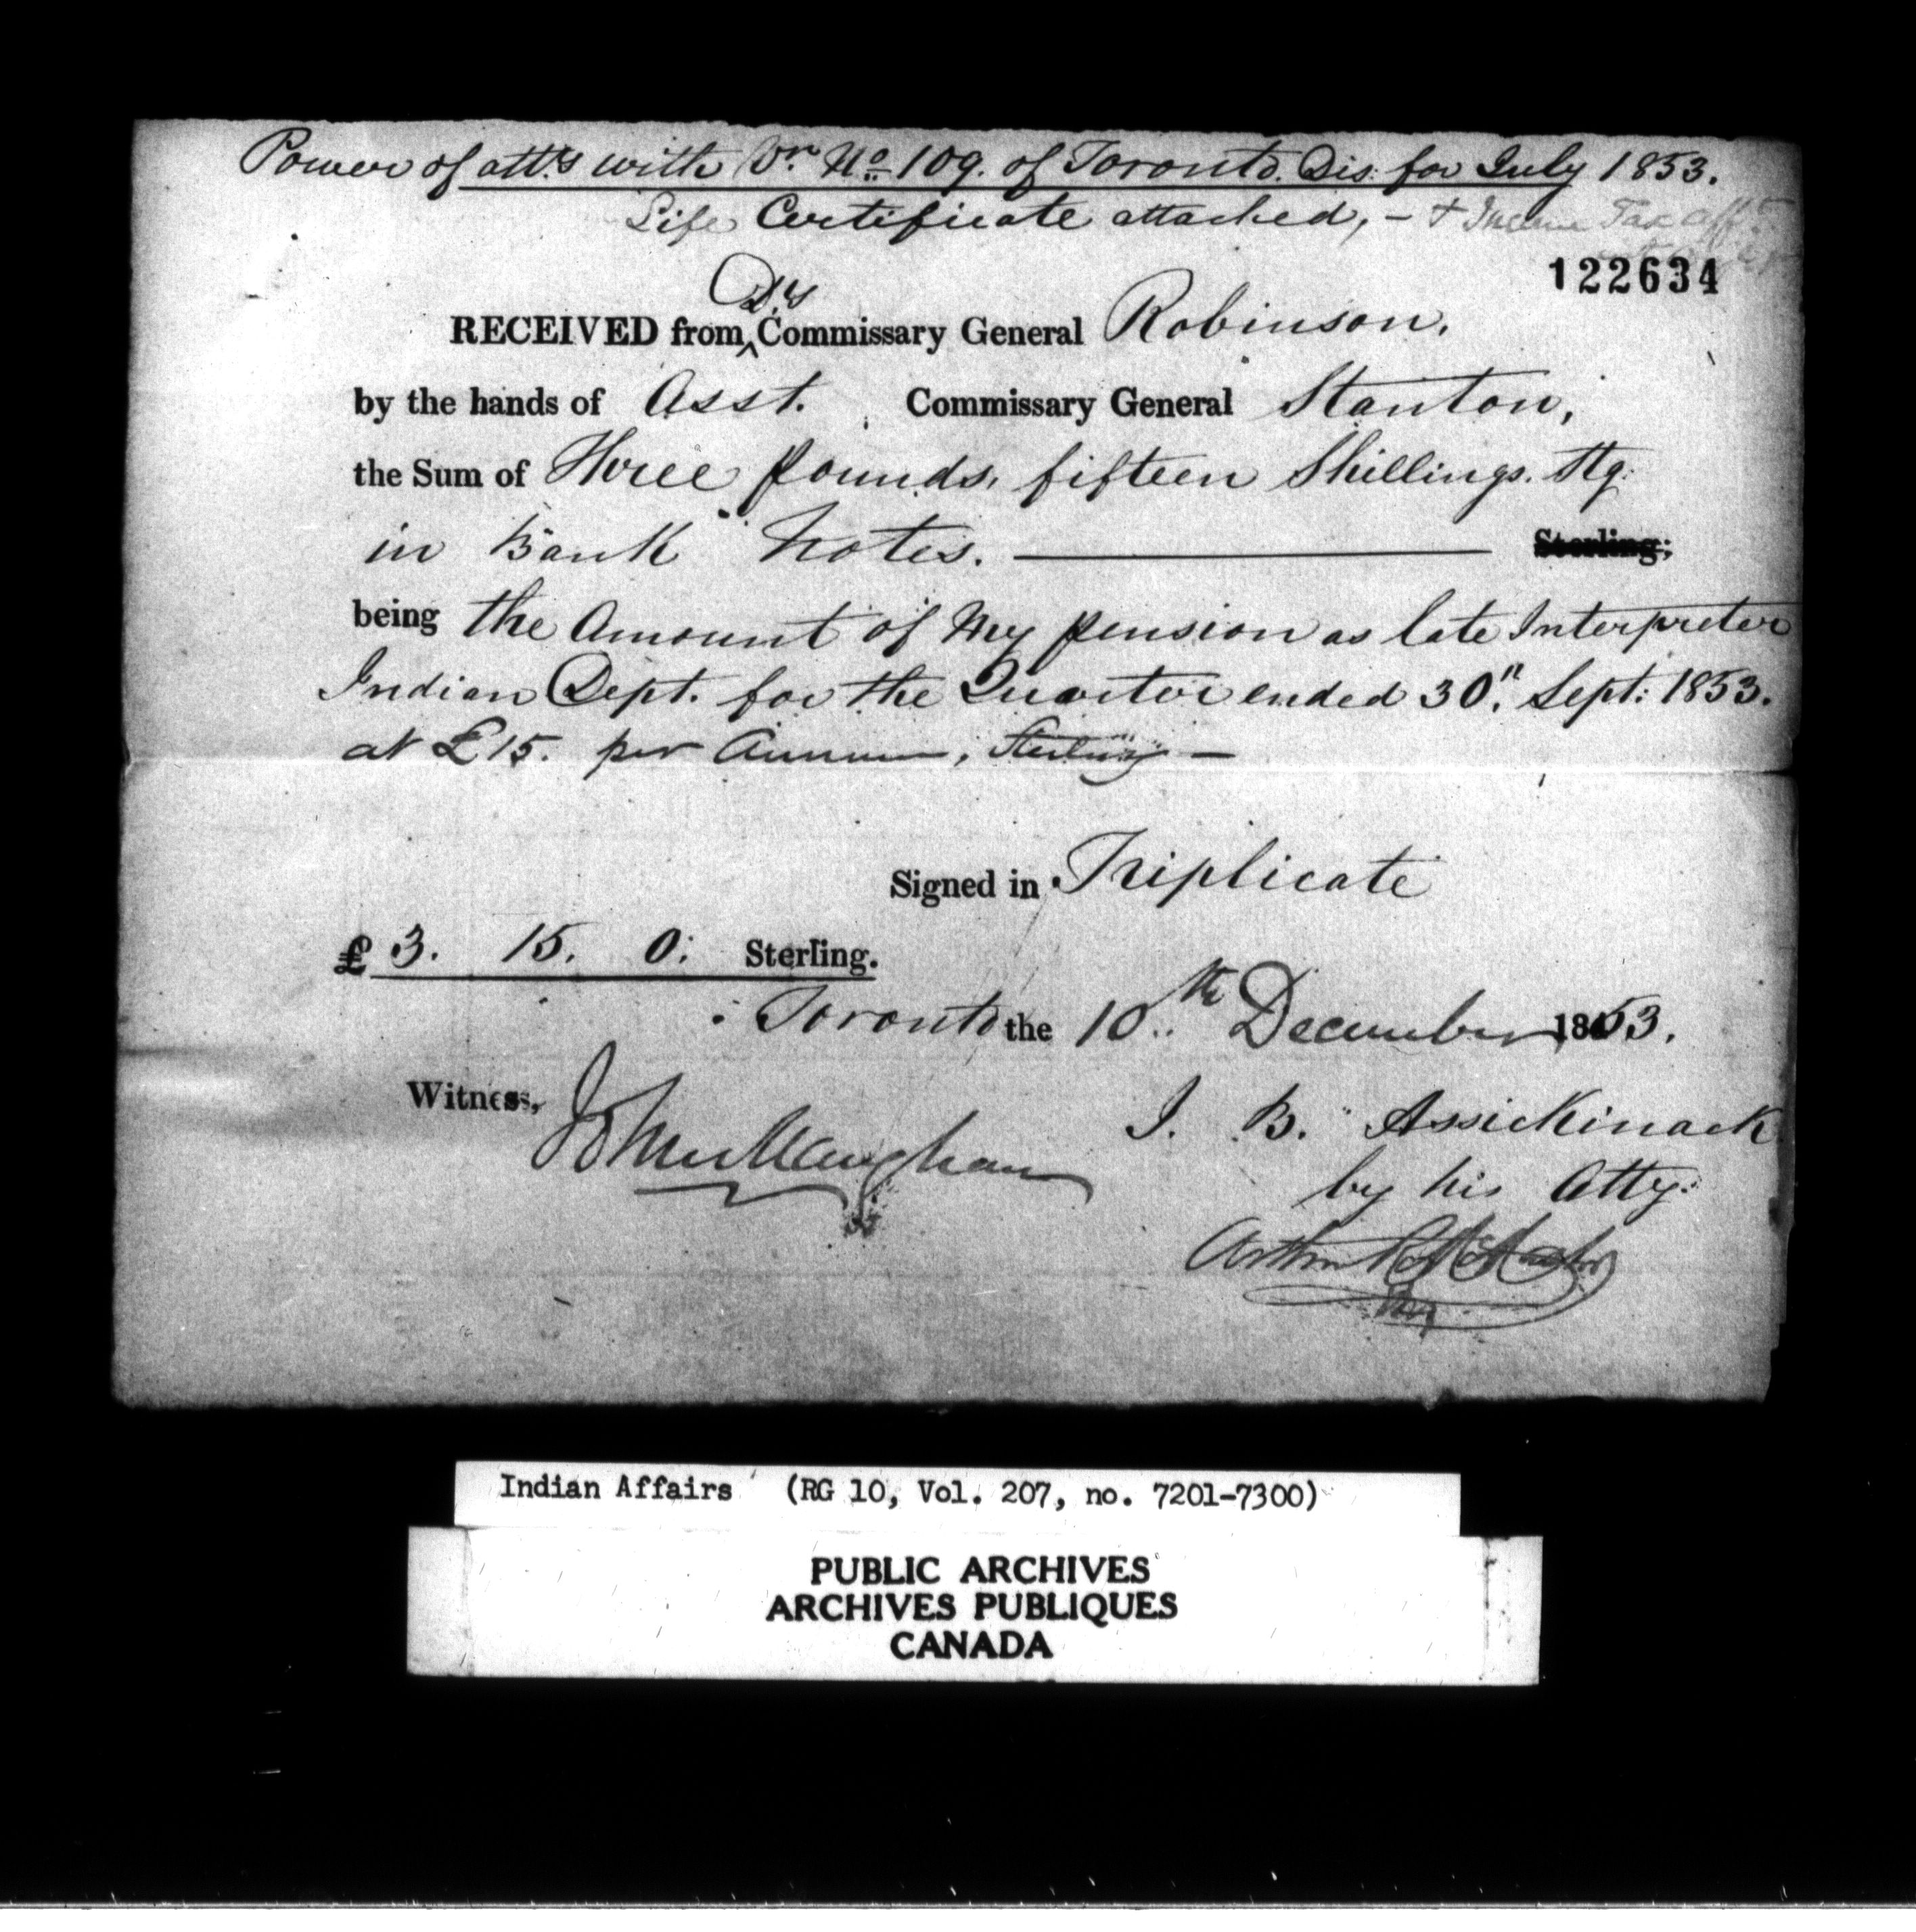 Power of att.y with Vr. No. 109. of Toronto. Dis: for July 1853.
Life Certificate attached, - + Income Tax aff
122634
Dy
RECEIVED from ^ Commissary General Robinson,
by the hands of Asst. Commissary General Stanton,
the Sum of Three pounds, fifteen Shillings. Stg:
in Bank Notes. Sterling;
being the Amount of My pension as late Interpreter
Indian Dept. for the Quarter ended 30th Sept: 1853.
at £15. per Annum, Sterling —
Signed in Triplicate
£ 3. 15. 0: Sterling.
Toronto the 10th December 1853.
Witness,
J. B. Assickinack
by his Atty:
Arthur
Indian Affairs (RG 10, Vol. 207, no. 7201-7300)
PUBLIC ARCHIVES
ARCHIVES PUBLIQUES
CANADA